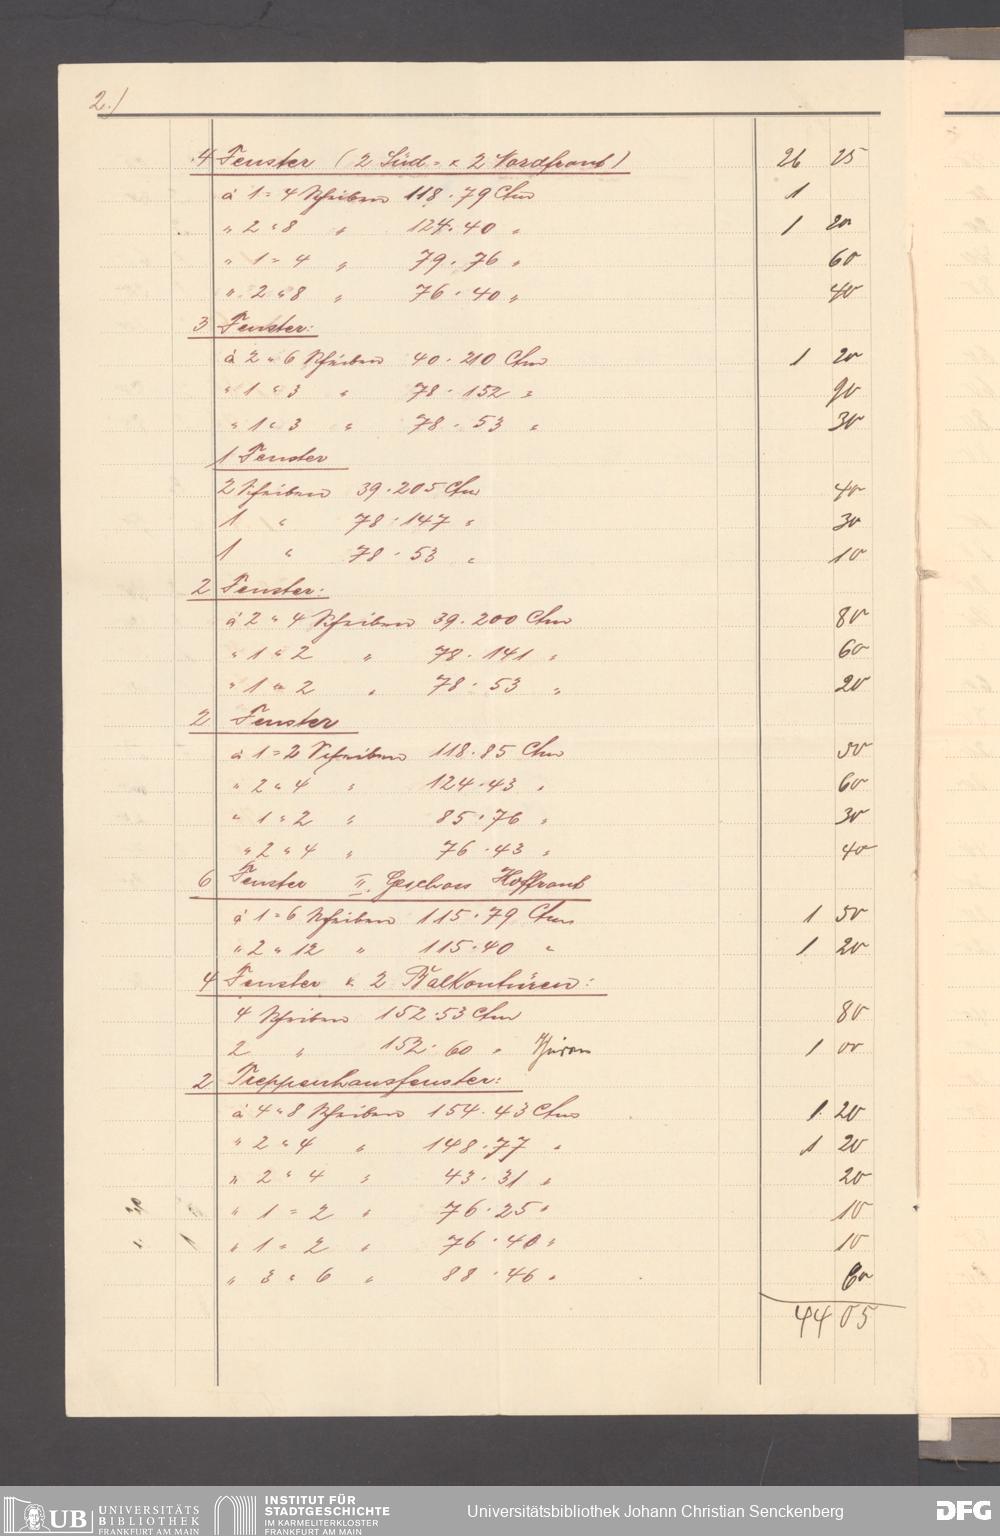 2.)
4 Fenster (2 Süd- u. 2 Nordfront) 26 25
à 1 = 4 Scheiben 118·79 Ctm 1
" 2 " 8 " 124·40 " 1 20
" 1 = 4 " 79·76 " 60
" 2 " 8 " 76·40 " 40
3 Fenster:
à 2 " 6 Scheiben 40·210 Ctm 1 20
" 1 " 3 " 78·152 " 90
" 1 " 3 " 78·53 " 30
1 Fenster
2 Scheiben 39·205 Ctm 40
1 " 78·147 " 30
1 " 78·53 " 10
2 Fenster:
à 2 " 4 Scheiben 39·200 Ctm 80
" 1 " 2 " 78·141 " 60
" 1 " 2 " 78·53 " 20
2 Fenster
à 1 = 2 Scheiben 118·85 Ctm 50
" 2 " 4 " 124·43 " 60
" 1 " 2 " 85·76 " 30
" 2 " 4 " 76·43 " 40
6 Fenster II. Geschoss Hoffront
à 1 = 6 Scheiben 115·79 Ctm 1 50
" 2 " 12 " 115·40 " 1 20
4 Fenster u. 2 Balkontüren:
4 Scheiben 152·53 Ctm 80
2 " 152·60 " 1 00
2 Treppenhausfenster:
à 4 " 8 Scheiben 154·43 Ctm 1 20
" 2 " 4 " 148·77 " 1 20
" 2 " 4 " 43·31 " 20
" 1 = 2 " 76·25 " 10
" 1 " 2 " 76·40 " 10
" 3 " 6 " 88·46 " 60
44 05
UB UNIVERSITÄTS BIBLIOTHEK FRANKFURT AM MAIN
INSTITUT FÜR STADTGESCHICHTE IM KARMELITERKLOSTER FRANKFURT AM MAIN
Universitätsbibliothek Johann Christian Senckenberg
DFG